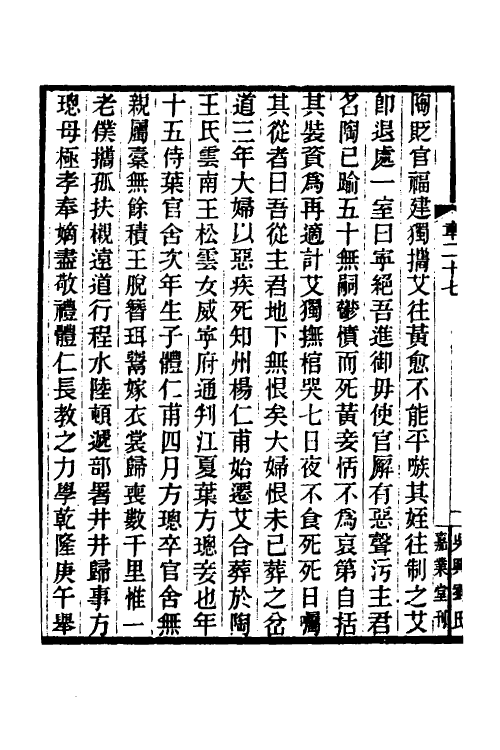 陶貶官福建獨攜艾往黃愈不能平嗾其姪往制之艾
卽退處一室曰寧絕吾進御毋使官廨有惡聲汚主君
名陶已踰五十無嗣鬱憤而死黃妾恬不爲哀第自括
其裝資爲再適計艾獨撫棺哭七日夜不食死死日囑
其從者曰吾從主君地下無恨矣大婦恨未已葬之岔
道三年大婦以惡疾死知州楊仁甫始遷艾合葬於陶
王氏雲南王松雲女威寧府通判江夏葉方璁妾也年
十五侍葉官舍次年生子體仁甫四月方璁卒官舍無
親屬橐無餘積王脫簪珥鬻嫁衣裳歸喪數千里惟一
老僕攜孤扶櫬遠道行程水陸頓遞部署井井歸事方
璁母極孝奉嫡盡敬禮體仁長教之力學乾隆庚午舉
二十七
吳興劉氏
嘉業堂刊